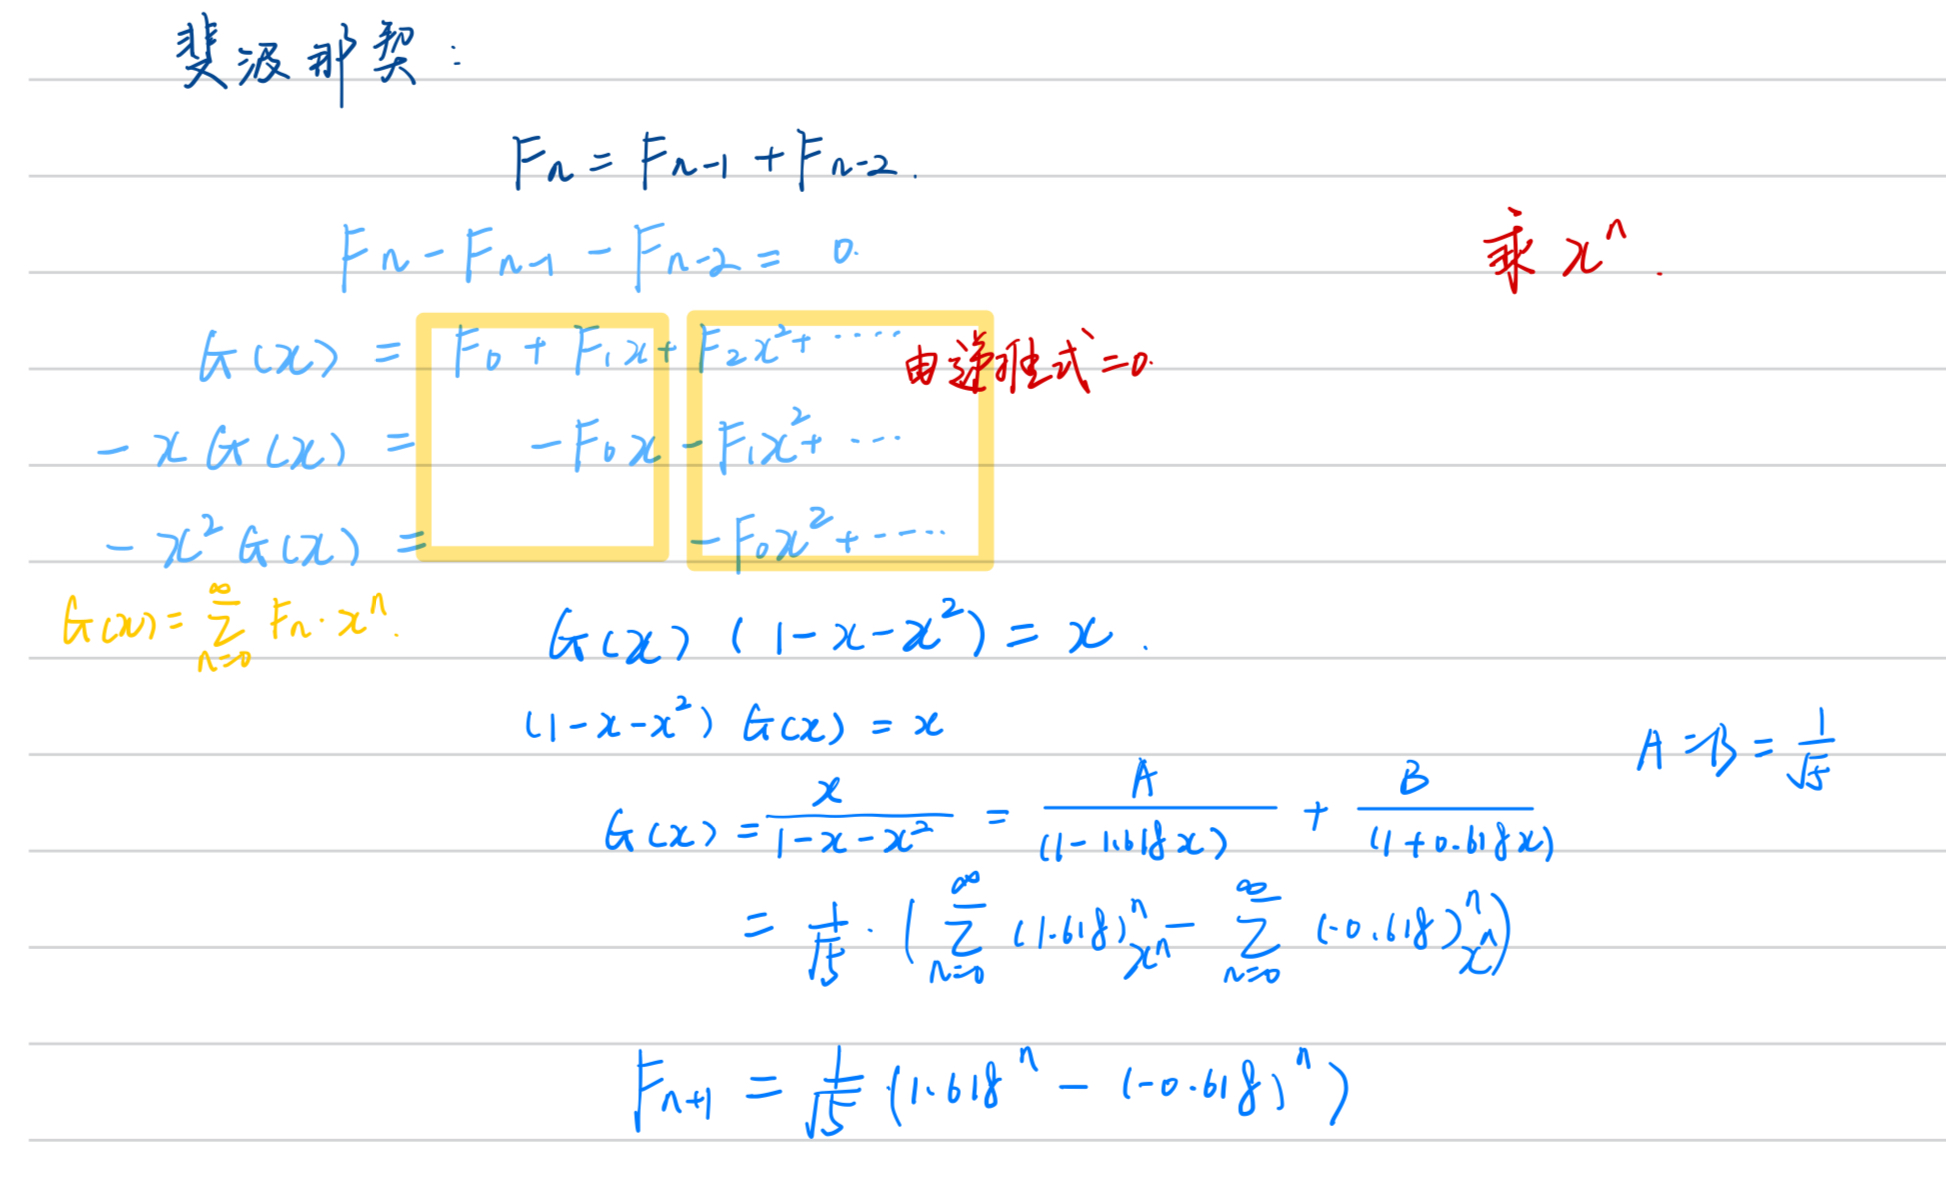 斐波那契：
Fn = Fn-1 + Fn-2.
Fn - Fn-1 - Fn-2 = 0.
乘 xⁿ.
G(x) = F₀ + F₁x + F₂x² + ·····
由递推式=0.
- x G(x) = -F₀x - F₁x² + ···
- x² G(x) = -F₀x² + ·····
G(x) = ∑_{n=0}^{∞} Fn · xⁿ.
G(x) (1-x-x²) = x.
(1-x-x²) G(x) = x
A = -B = 1/√5
G(x) = x/(1-x-x²) = A/(1-1.618x) + B/(1+0.618x)
= 1/√5 · (∑_{n=0}^{∞} (1.618)ⁿxⁿ - ∑_{n=0}^{∞} (-0.618)ⁿxⁿ)
F_{n+1} = 1/√5 (1.618ⁿ - (-0.618)ⁿ)